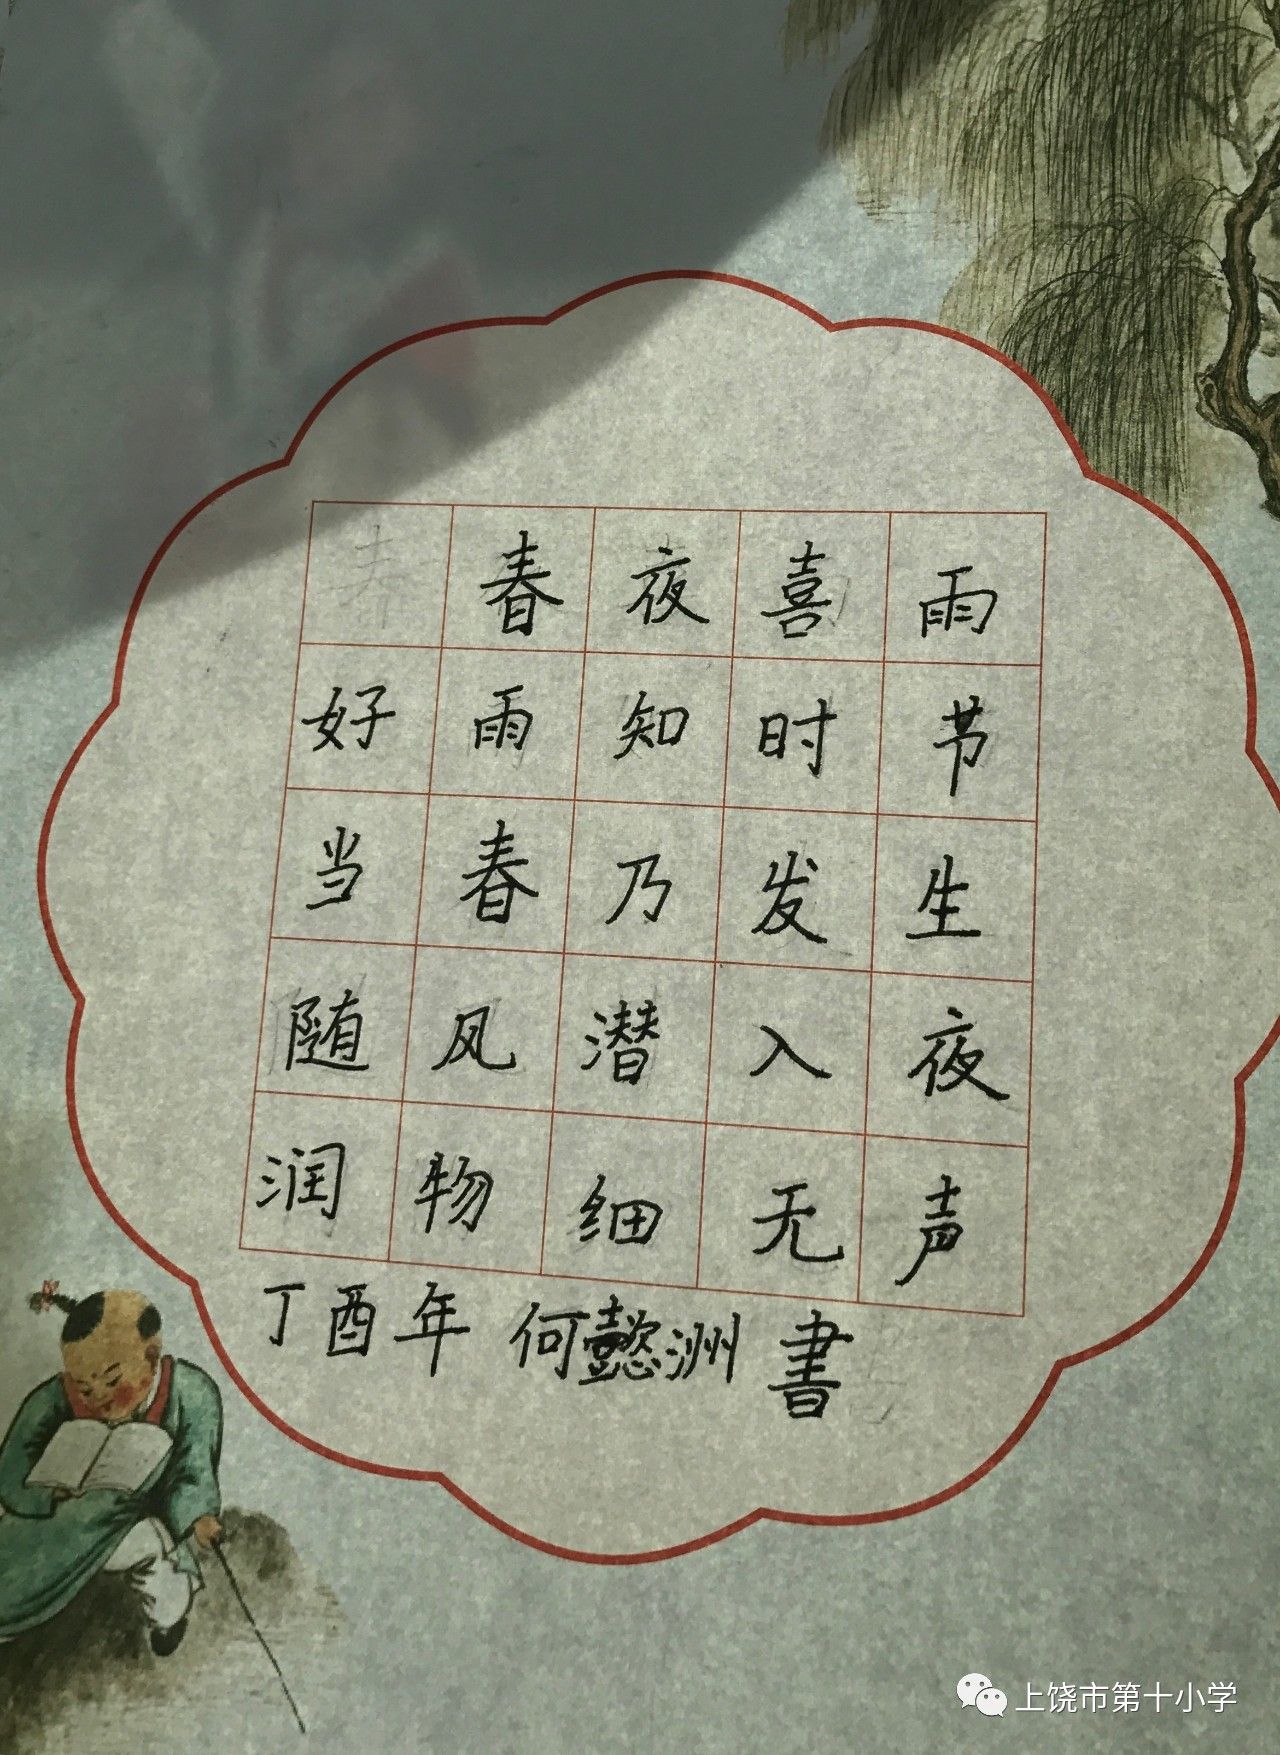 春夜喜雨
好雨知时节
当春乃发生
随风潜入夜
润物细无声
丁酉年 何懿洲 書
上饶市第十小学